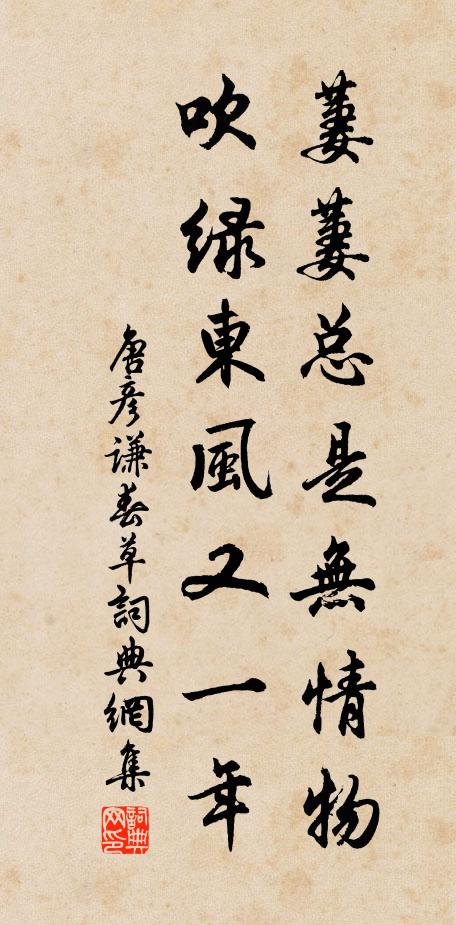 萋萋总是無情物
吹緑東風又一年
唐彦謙春草詞典網集
詞典
网印